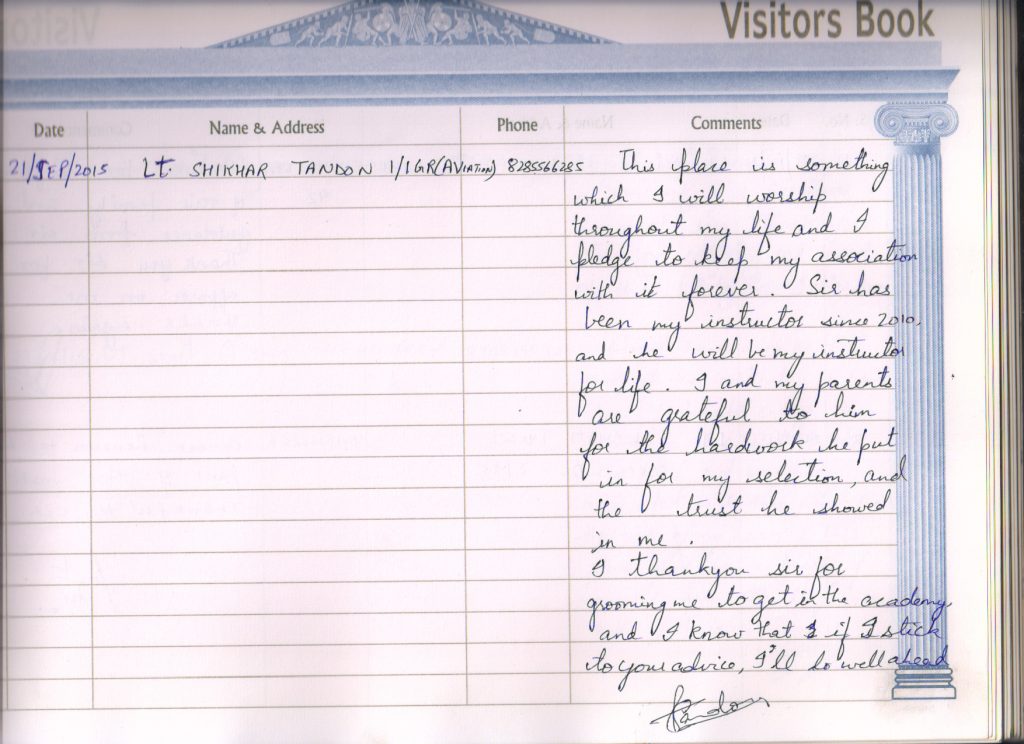 Visitors Book
Date Name & Address Phone Comments
21/SEP/2015 Lt. SHIKHAR TANDON 1/1 GR(AVIATION) 8285566285 This place is something
which I will worship
throughout my life and I
pledge to keep my association
with it forever. Sir has
been my instructor since 2010,
and he will be my instructor
for life. I and my parents
are grateful to him
for the hardwork he put
in for my selection, and
the trust he showed
in me.
I thankyou sir for
grooming me to get in the academy,
and I know that if I stick
to your advice, I'll do well ahead